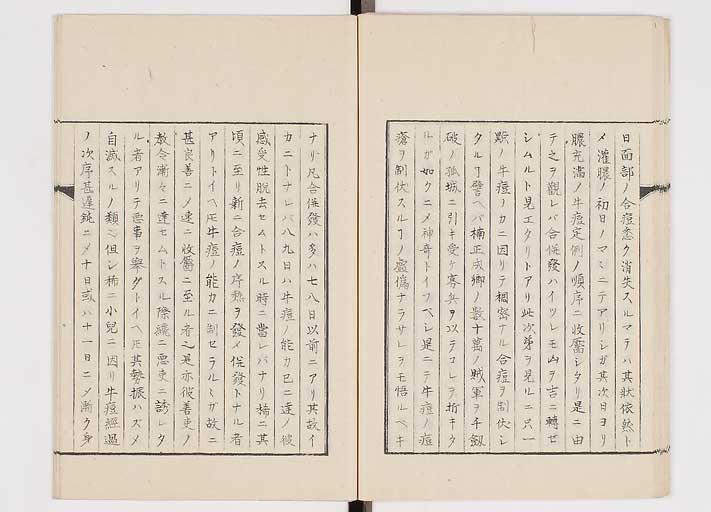 日面部ノ合痘悉ク消散スルマテハ其狀依然ト
メ灌膿ノ初日ノマヽニテアリシガ其次日ヨリ
膿充満ノ牛痘定例ノ順序ニ收靨シタリ是ニ由
テ之ヲ觀レバ合併發ハイツレモ凶ヲ吉ニ轉ゼ
シムルト見エタリトアリ此次第ヲ見ルニ只一
顆ノ牛痘ノカニ因リテ稠密ナル合痘ヲ制伏シ
タルヿ譬ヘバ楠正成卿ノ數十萬ノ賊軍ヲ千劔
破ノ孤城ニ引キ受ケ寡兵ヲ以テコレヲ折キタ
ルガ如クニメ神奇トイフベシ是ニテ牛痘ノ痘
瘡ヲ制伏スルヿノ虚偽ナラサルヲモ悟ルベキ
ナリ凡合併發ハ多ハ七八日以前ニアリ其故イ
カニトナレバ八九日ハ牛痘ノ能力已ニ達ノ彼
感受性脱去セムトスル時ニ當レバナリ矯ニ其
頃ニ至リ新ニ合痘ノ序熱ヲ發メ併發トナル者
アリトイヘ𪜈牛痘ノ能力ニ制セラルヽガ故ニ
甚良善ニメ速ニ收靨ニ至ル者之是亦彼善吏ノ
教令漸々ニ達セムトスル際纔ニ悪吏ニ誘レタ
ル者アリテ悪事ヲ擧グトイヘ𪜈其勢振ハズメ
自滅スルノ類之但シ稀ニ小兒ニ因リ牛痘經過
ノ次序甚遲鈍ニメ十日或ハ十一日ニメ漸ク身